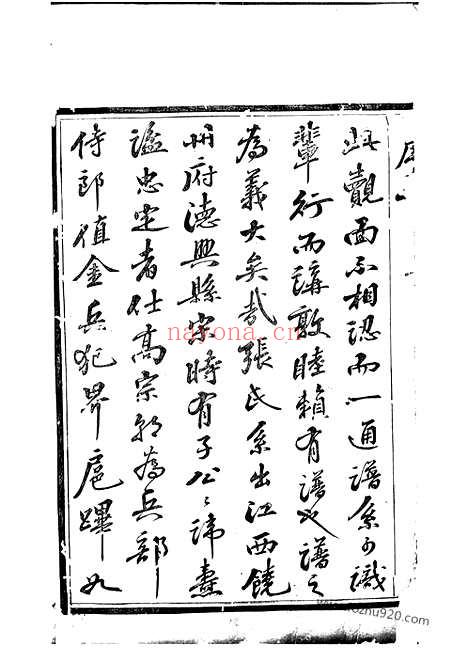 此覿面不相認而一通譜系即識
輩行而講敦睦賴有譜也譜之
為義大矣哉張氏系出江西饒
州府德興縣宋時有子公公諱燾
諡忠定者仕高宗朝為兵部
侍郎值金兵犯界扈蹕
nayona.cn
zhu920.com